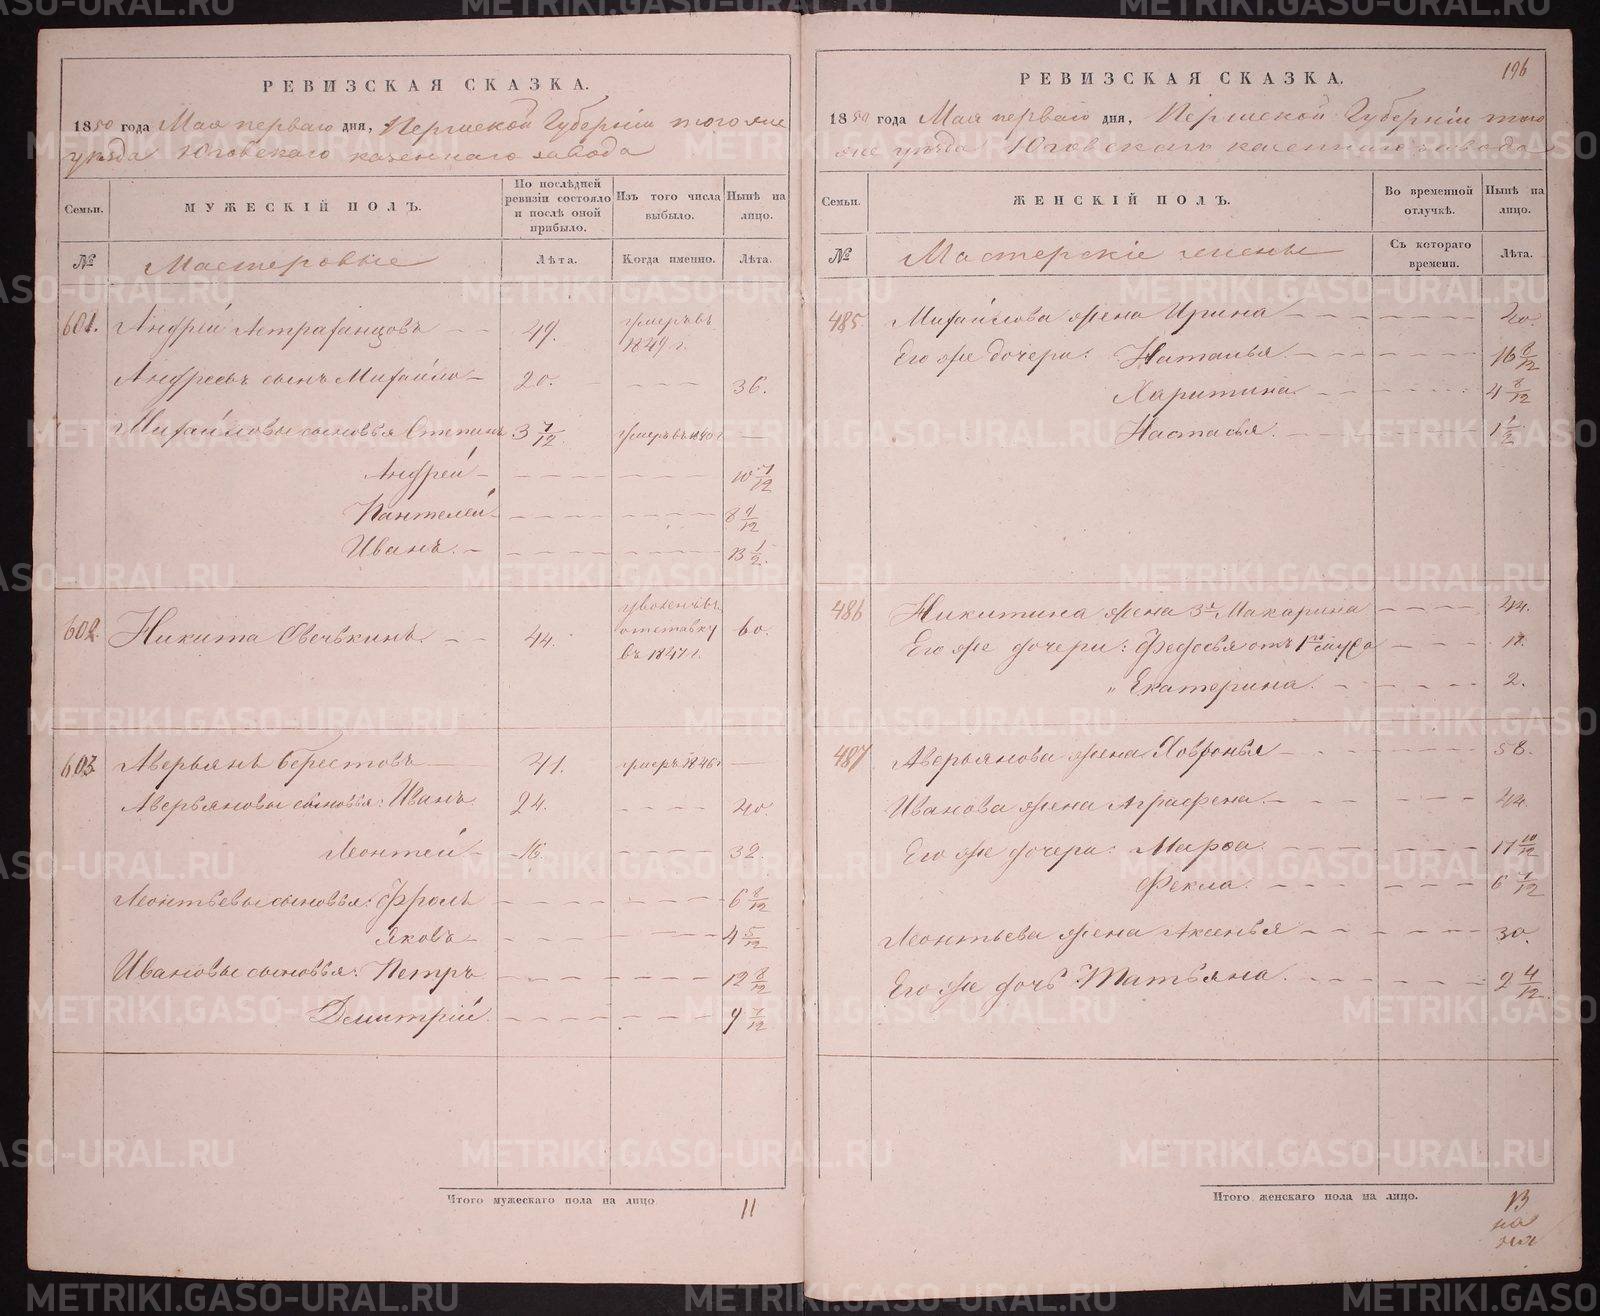 РЕВИЗСКАЯ СКАЗКА.
1850 года Мая перваго дня, Пермской Губерніи того же
уѣзда Юговскаго казеннаго завода
Семьи.
МУЖЕСКІЙ ПОЛЪ.
По послѣдней ревизіи состояло и послѣ оной прибыло.
Изъ того числа выбыло.
Нынѣ на лицо.
№
Мастеровые
Лѣта.
Когда именно.
Лѣта.
601. Андрей Астраханцовъ 49. умеръ въ 1849 г.
Андреевъ сынъ Михайло 20. 36.
Михайловы сыновья Степанъ 3 7/12 умеръ въ 1840 г
Андрей 10 7/12
Пантелей 8 9/12
Иванъ. 3 1/2.
602. Никита Свечькинъ 44. уволенъ въ отставку въ 1847 г. 60.
603 Аверьянъ Берестовъ 41. умеръ 1846 г
Аверьяновы сыновья: Иванъ 24. 40.
Леонтей 16. 32.
Леонтьевы сыновья: Фролъ 6 8/12
Яковъ 4 5/12
Ивановы сыновья: Петръ 12 8/12
Дмитрій. 9 7/12
Итого мужескаго пола на лицо 11
196
РЕВИЗСКАЯ СКАЗКА.
1850 года Мая перваго дня, Пермской Губерніи того
же уѣзда Юговскаго казеннаго завода
Семьи.
ЖЕНСКІЙ ПОЛЪ.
Во временной отлучкѣ.
Нынѣ на лицо.
№
Мастерскіе жены
Съ котораго времени.
Лѣта.
485 Михайлова жена Ирина
Его же дочери: Наталья 16 8/12
Харитина 4 8/12
Настасья. 1 1/2
486 Никитина жена 3я Макарина 44.
Его же дочери: Федосья отъ 1го мужа 18.
" Екатерина. 2.
487 Аверьянова жена Ховронья 58.
Иванова жена Аграфена. 44.
Его же дочери: Марѳа 17 10/12
Фекла. 6 7/12
Леонтьева жена Аксинья 30.
Его же дочь Татьяна. 2 4/12
Итого женскаго пола на лицо. 13
METRIKI.GASO-URAL.RU